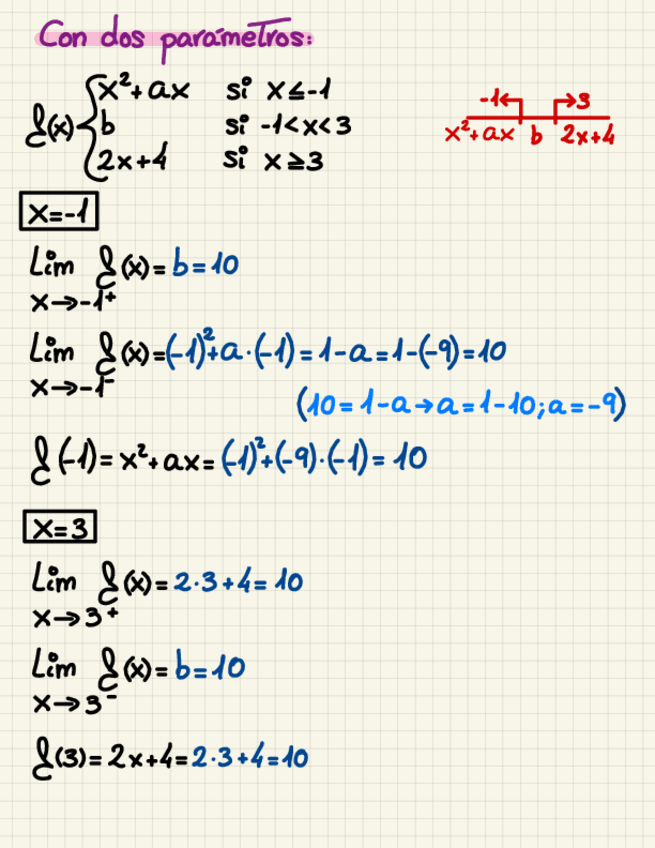 Con dos parámetros:
f(x) { x²+ax si x≤-1
b si -1<x<3
2x+4 si x≥3
-1← →3
x²+ax b 2x+4
x=-1
Lim f(x)= b=10
x→-1⁺
Lim f(x)=(-1)²+a·(-1)=1-a=1-(-9)=10
x→-1⁻
(10=1-a→a=1-10;a=-9)
f(-1)=x²+ax=(-1)²+(-9)·(-1)=10
x=3
Lim f(x)=2·3+4=10
x→3⁺
Lim f(x)=b=10
x→3⁻
f(3)=2x+4=2·3+4=10